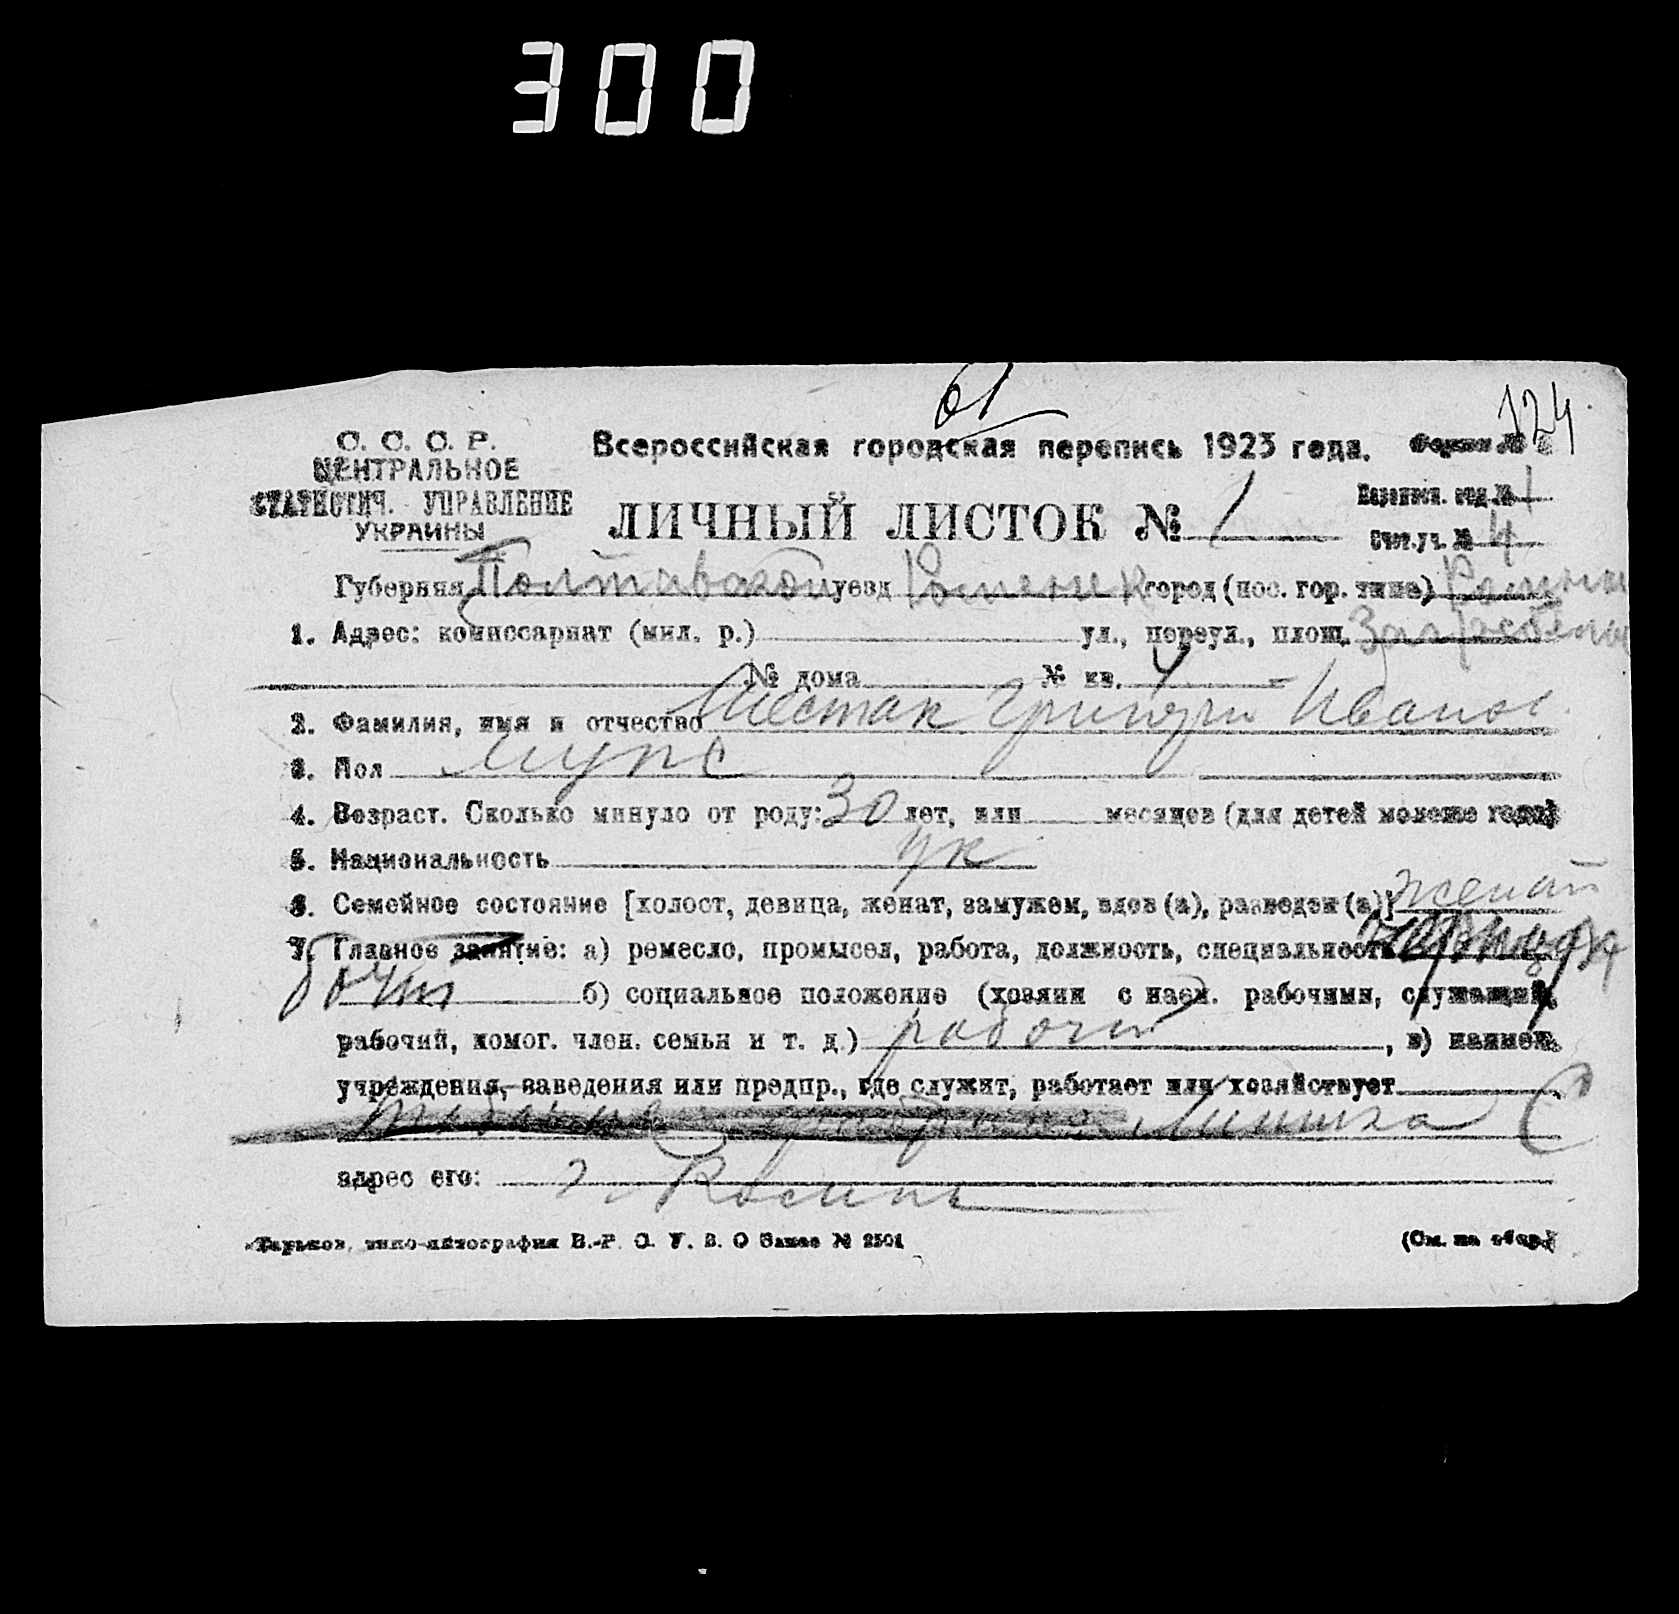 300
61
124
С. С. С. Р.
ЦЕНТРАЛЬНОЕ
СТАТИСТИЧ. УПРАВЛЕНИЕ
УКРАИНЫ
Всероссийская городская перепись 1923 года. Форма №
ЛИЧНЫЙ ЛИСТОК № 1
Переписн. отд. № 1
Счет. уч. № 4
Губерния Полтавской уезд Роменск город (пос. гор. типа) Ромны
1. Адрес: комиссариат (мил. р.) ул., переул., площ.
№ дома № кв.
2. Фамилия, имя и отчество Шестак Григори Иванов
3. Пол мужс
4. Возраст. Сколько минуло от роду: 30 лет, или месяцев (для детей моложе года)
5. Национальность ук
6. Семейное состояние [холост, девица, женат, замужем, вдов (а), разведен (а)] женат
7. Главное занятие: а) ремесло, промысел, работа, должность, специальность
б) социальное положение (хозяин с наем. рабочими, служащий,
рабочий, помог. член. семьи и т. д.) рабочий, в) наимен.
учреждения, заведения или предпр., где служит, работает или хозяйствует
адрес его: г.
Харьков, типо-литография В.-Р. О. У. В. О Заказ № 2501 (См. на обор.)